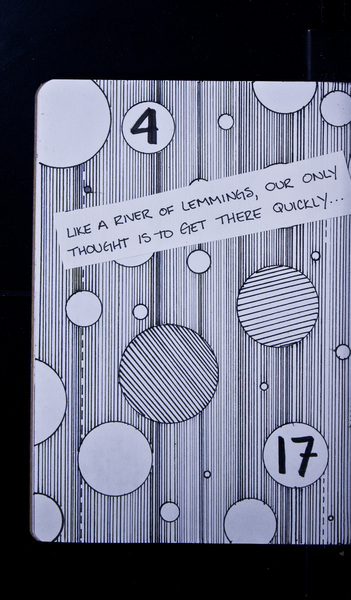 4
LIKE A RIVER OF LEMMINGS, OUR ONLY
THOUGHT IS TO GET THERE QUICKLY...
17